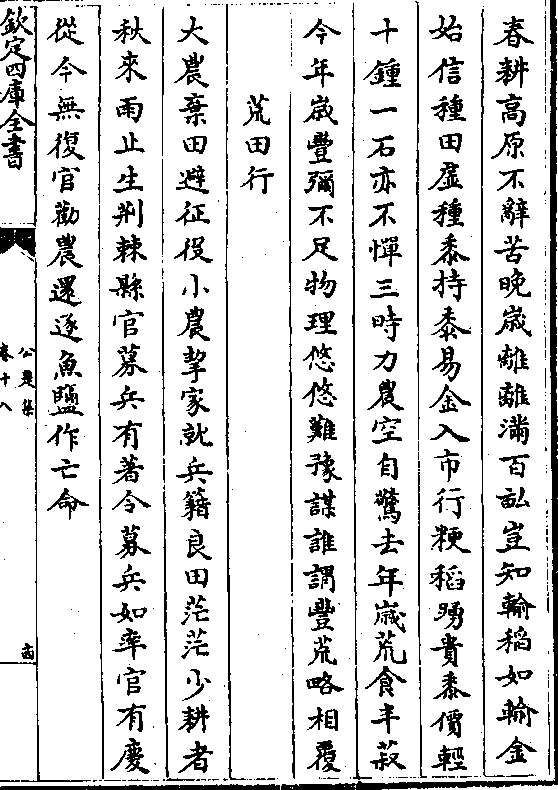 春耕高原不辭苦晚嵗離離滿百畝豈知輸稻如輸金
始信種田虛種黍持黍易金入市行粳稻踴貴黍價輕
十鍾一石亦不憚三時力農空自驚去年嵗荒食半菽
今年嵗豐彌不足物理悠悠難豫謀誰謂豐荒略相覆
荒田行
大農棄田避征役小農挈家就兵籍良田茫茫少耕者
秋來雨止生荆棘縣官募兵有著令募兵如率官有慶
從今無復官勸農還逐魚鹽作亡命
欽定四庫全書
公是集
卷十八